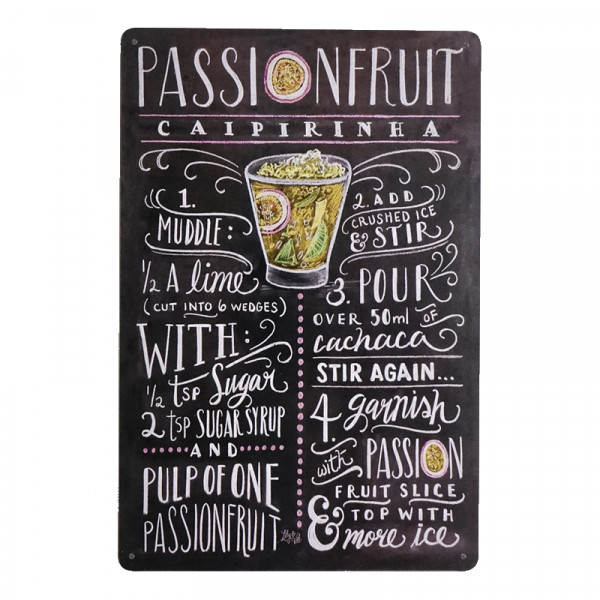 PASSIONFRUIT
CAIPIRINHA
1.
MUDDLE:
1/2 A lime
(CUT INTO 6 WEDGES)
WITH:
1/2 tsp Sugar
2 tsp SUGAR SYRUP
AND
PULP OF ONE
PASSIONFRUIT
2. ADD
CRUSHED ICE
& STIR
3. POUR
OVER 50ml OF
cachaca
STIR AGAIN...
4. garnish
with PASSION
FRUIT SLICE
& TOP WITH
more ice